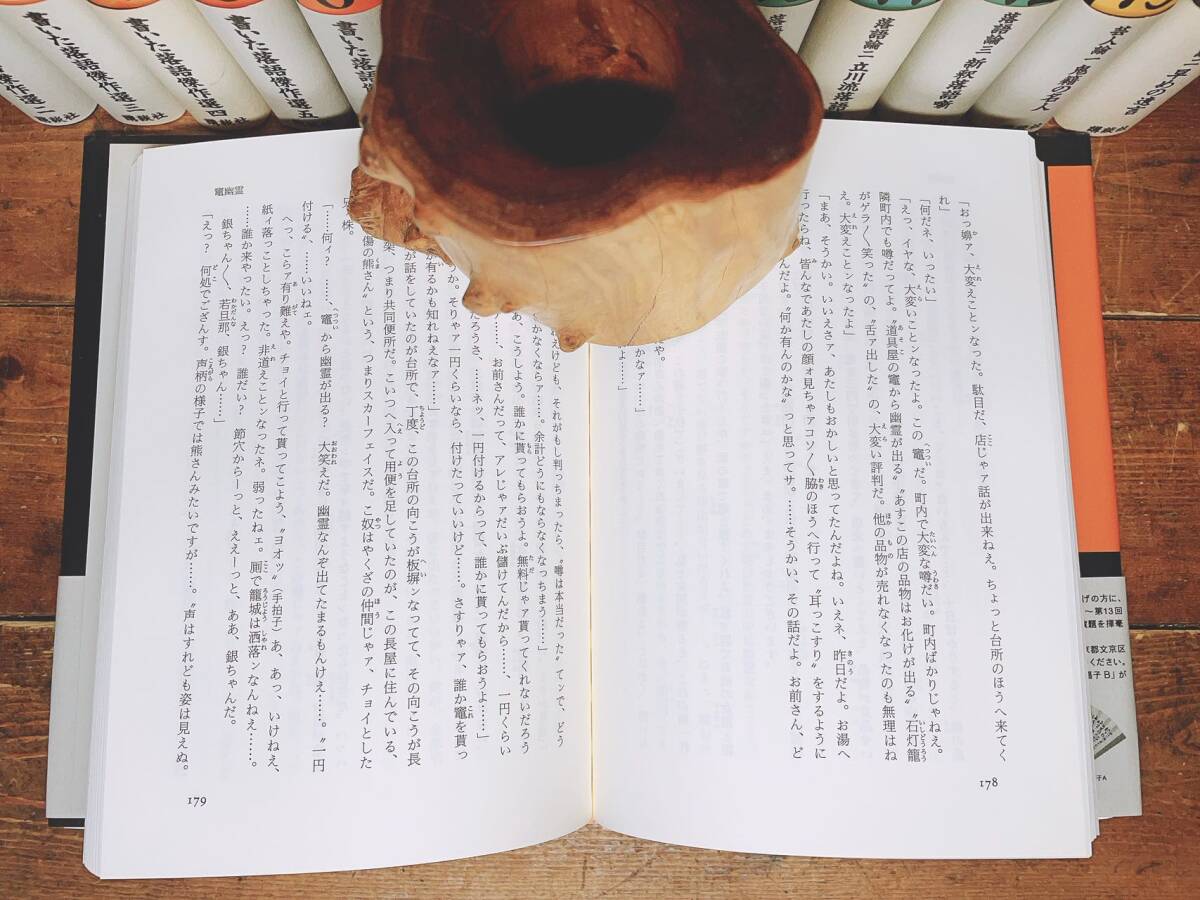 書いた落語傑作選二
講談社
書いた落語傑作選三
講談社
書いた落語傑作選四
講談社
書いた落語傑作選五
落語論二 立川流落語
落語論三 新釈落語
講談社
「おっ嬶ァ、大変えことンなった。駄目だ、店じゃァ話が出来ねえ。ちょっと台所のほうへ来てく
れ」
「何だネ、いったい」
「えっ、イヤな、大変いことンなったよ。この竈だ。町内で大変な噂だい。町内ばかりじゃねえ。
隣町内でも噂だってよ。〝道具屋の竈から幽霊が出る〟〝あすこの店の品物はお化けが出る〟〝石灯籠
がゲラ〱笑った〟の、〝舌ァ出した〟の、大変い評判だ。他の品物が売れなくなったのも無理はね
え。大変えことンなったよ」
「まあ、そうかい。いいえさァ、あたしもおかしいと思ってたんだよね。いえネ、昨日だよ。お湯へ
行ったらね、皆んなであたしの顔ォ見ちゃァコソ〱脇のほうへ行って〝耳っこすり〟をするように
んだよ。〝何か有んのかな〟っと思ってサ。……そうかい、その話だよ。お前さん、ど
や。
かなァ……」
よ……」
178
えけども、それがもし判っちまったら、〝噂は本当だった〟てンで、どう
かなくならァ……。余計どうにもならなくなっちまう……」
あ、こうしよう。誰かに貰ってもらおうよ。無料じゃァ貰ってくれないだろう
……、お前さんだって、アレじゃァだいぶ儲けてんだから……、一円くらい
だろうさ、……ネッ、一円付けるからって、誰かに貰ってもらおうよ……」
うか。そりゃァ一円くらいなら、付けたっていいけど……。さすりゃァ、誰か竈を貰っ
が有るかも知れねえなァ……」
が話をしていたのが台所で、丁度、この台所の向こうが板塀ンなってて、その向こうが長
架、つまり共同便所だ。こいつへ入って用便を足していたのが、この長屋に住んでいる、
傷の熊さん〟という、つまりスカーフェイスだ。こ奴はやくざの仲間じゃァ、チョイとした
株。
「……何ィ? ……、竈から幽霊が出る? 大笑えだ。幽霊なんぞ出てたまるもんけえ……。〝一円
付ける〟、……いいねェ。
へっ、こらァ有り難えや。チョイと行って貰ってこよう、〝ヨオッ〟(手拍子)あ、あっ、いけねえ、
紙ィ落っことしちゃった。非道えことンなったネ。弱ったねェ。厠で籠城は洒落ンなんねえ……。
……誰か来やったい。えっ? 誰だい? 節穴からーっと、ええーっと、ああ、銀ちゃんだ。
銀ちゃん〱、若旦那、銀ちゃん……」
「えっ? 何処でござんす。声柄の様子では熊さんみたいですが……。〝声はすれども姿は見えぬ。
竈幽霊
179
げの方に、
～第13回
京都文京区
ください。
子A